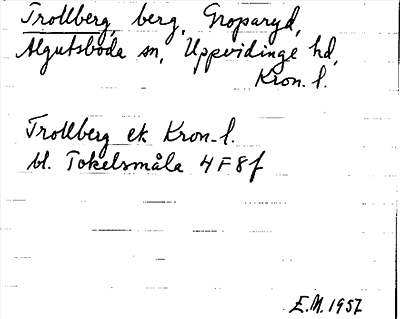 Trollberg, berg, Groparyd,
Algutsboda sn, Uppvidinge hd,
Kron. l.
Trollberg ek Kron. l.
bl. Tokelsmåla 4F8f
E.M. 1957